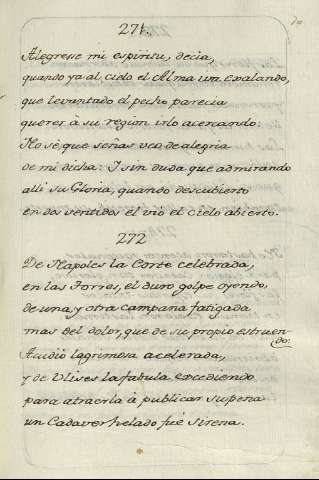 271.
Alegrese mi espiritu, decia,
quando ya al cielo el Alma iva exalando,
que levantado el pecho parecia
querer à su region irlo acercando:
No sè que señas veo de alegria
de mi dicha: I sin duda que admirando
alli su Gloria, quando descubierto
en dos sentidos el vio el cielo abierto.
272
De Napoles la Corte celebrada,
en las Torres, el duro golpe oyendo,
de una, y otra campana fatigada
mas del dolor, que de su propio estruen-
do:
Acudiò lagrimosa acelerada,
y de Ulises la fabula excediendo
para atraerla à publicar su pena
un Cadaver helado fuè sirena.